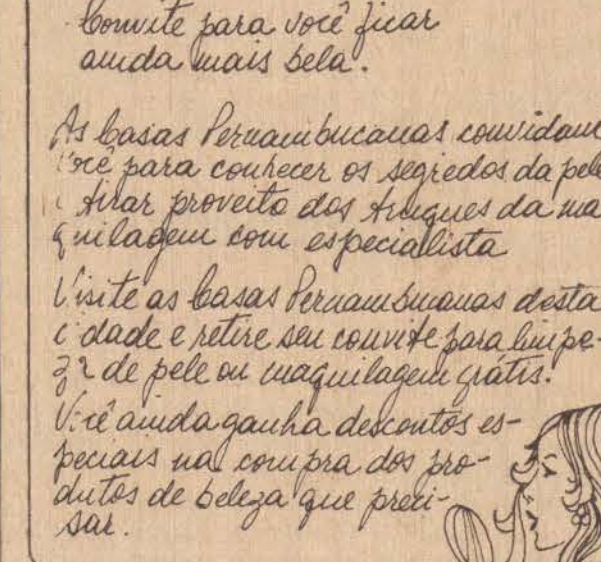 Convite para você ficar
ainda mais bela.
As Casas Pernambucanas convidam
você para conhecer os segredos da pele
e tirar proveito dos truques da ma
quilagem com especialista
Visite as Casas Pernambucanas desta
cidade e retire seu convite para limpe-
za de pele ou maquilagem grátis.
Você ainda ganha descontos es-
peciais na compra dos pro-
dutos de beleza que preci-
sar.